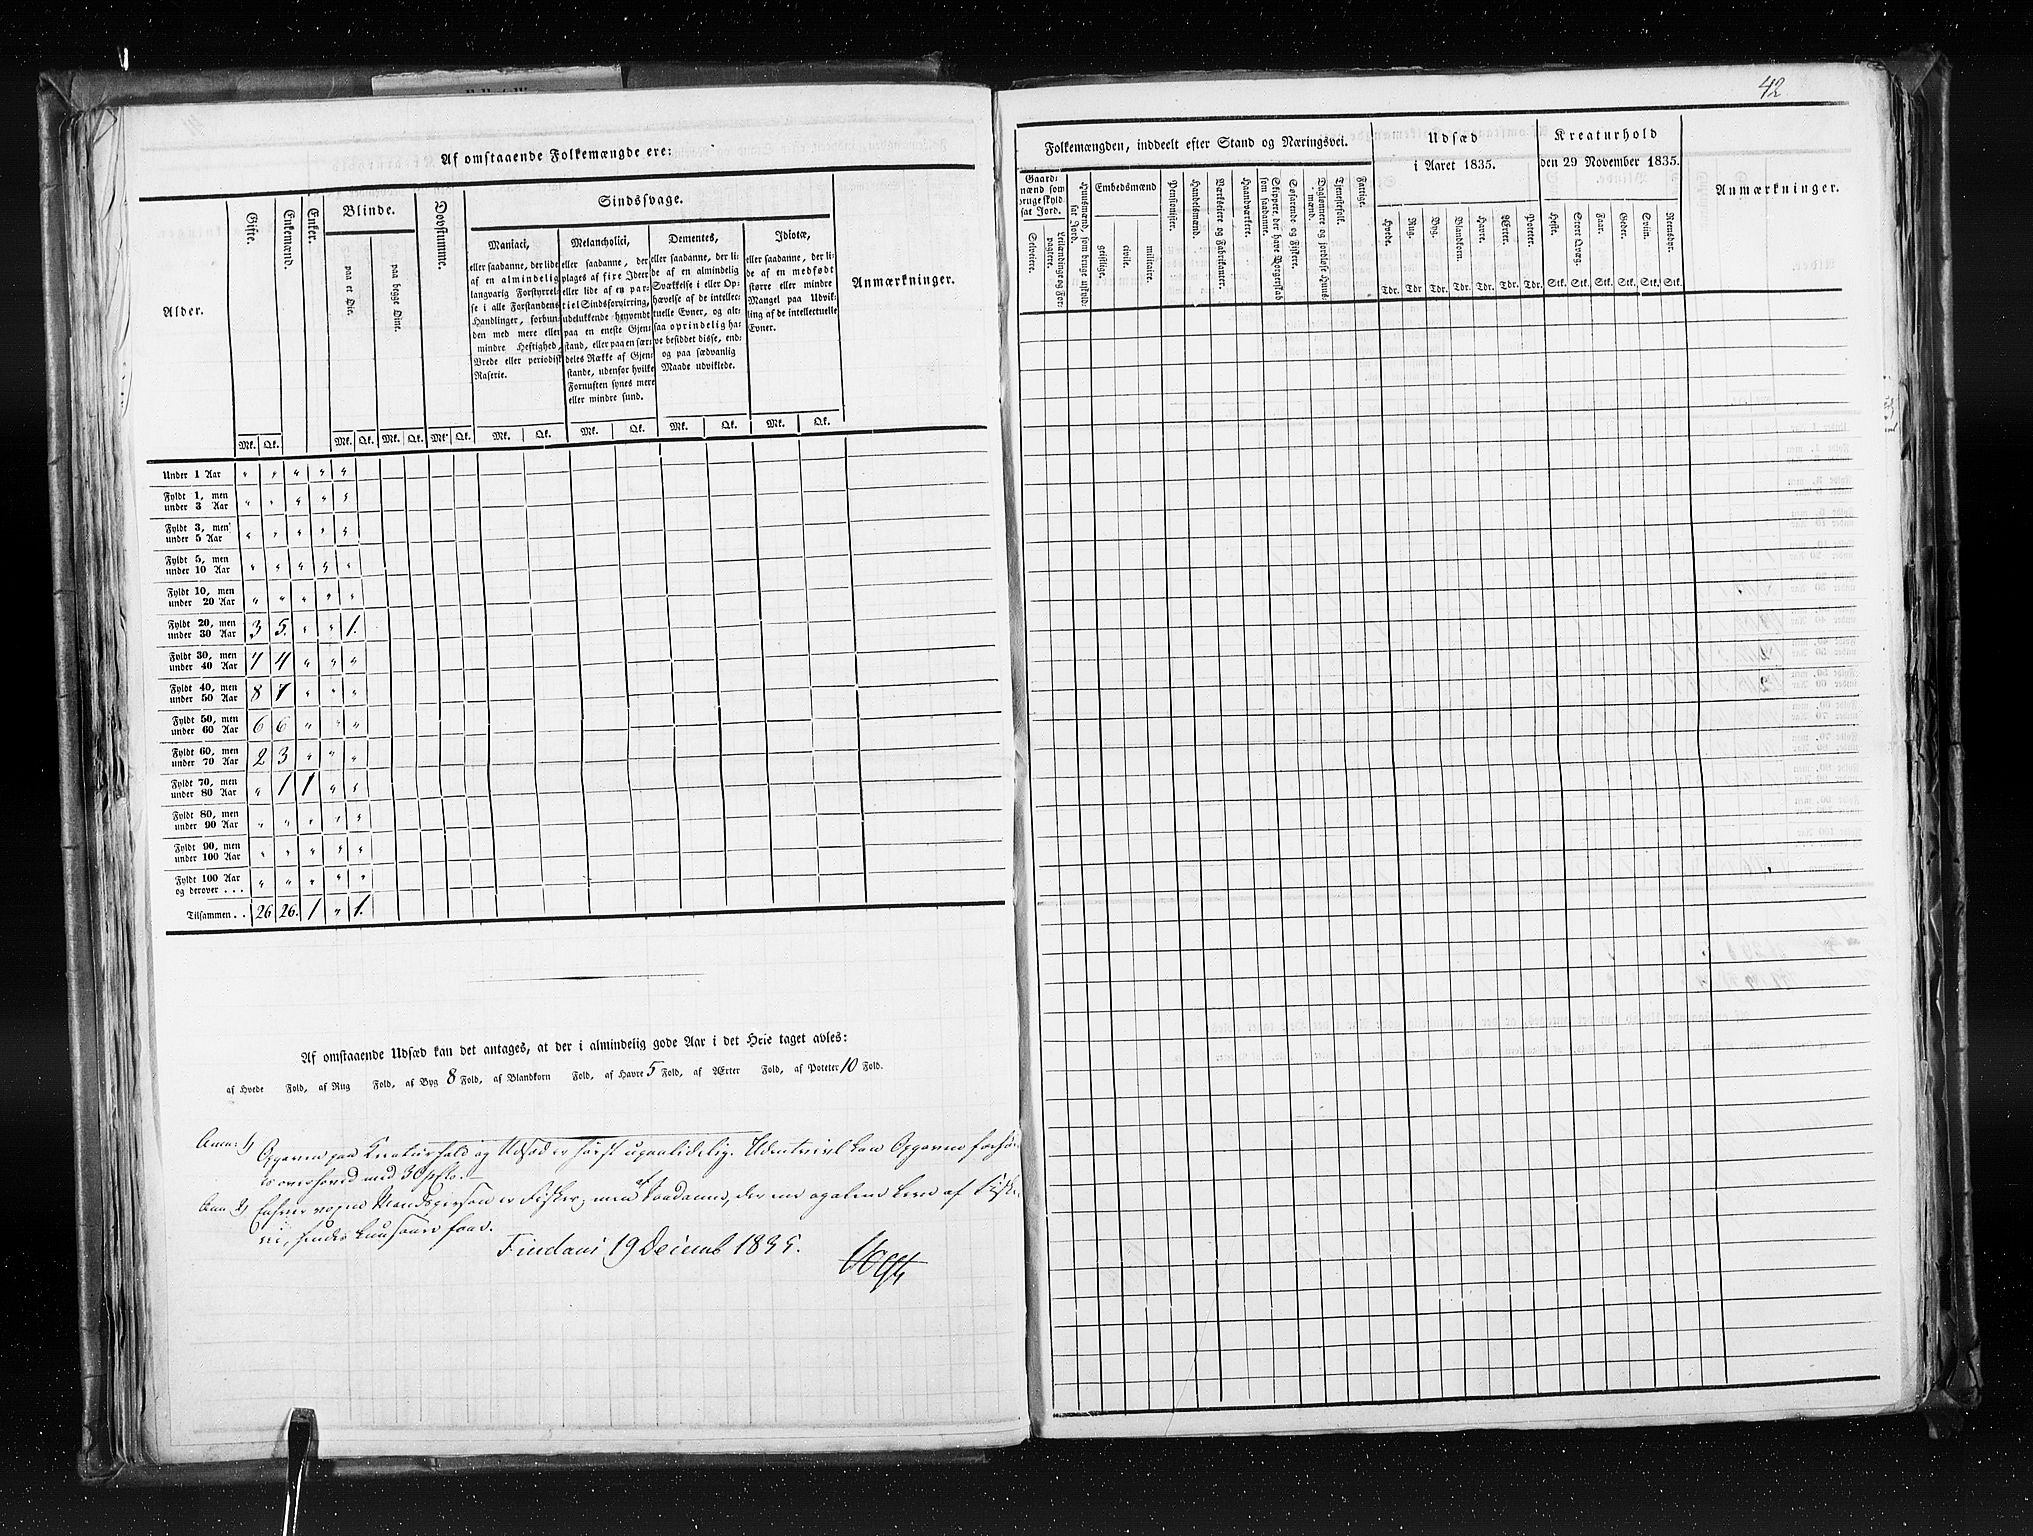 Af omstaaende Folkemængde ere:
Alder. Gifte. Enkemænd. Enker. Blinde. Døvstumme. Sindssvage. Anmærkninger.
paa et Øie. paa begge Øine.
Maniaci,
eller saadanne, der lide
af en almindelig
langvarig Forstyrrel-
se i alle Forstandens
Handlinger, forbun-
den med mere eller
mindre Heftighed,
Vrede eller periodisk
Raserie.
Melancholici,
eller saadanne, der
plages af fixe Ideer
eller lide af en par-
tiel Sindsforvirring,
udelukkende henvendt
paa en eneste Gjen-
stand, eller paa en sær-
deles Række af Gjen-
stande, udenfor hvilke
Fornuften synes mere
eller mindre sund.
Dementes,
eller saadanne, der li-
de af en almindelig
Svækkelse i eller Op-
hævelse af de intellec-
tuelle Evner, og alt-
saa oprindelig ha-
ve besiddet disse, end-
og paa sædvanlig
Maade udviklede.
Idiotæ,
eller saadanne, der li-
de af en medfødt
større eller mindre
Mangel paa Udvik-
ling af de intellectuelle
Evner.
Mk. Qk. Mk. Qk. Mk. Qk. Mk. Qk. Mk. Qk. Mk. Qk. Mk. Qk. Mk. Qk.
Under 1 Aar " " " " "
Fyldt 1, men
under 3 Aar " " " " "
Fyldt 3, men
under 5 Aar " " " " "
Fyldt 5, men
under 10 Aar " " " " "
Fyldt 10, men
under 20 Aar " " " " "
Fyldt 20, men
under 30 Aar 3 5. " " 1.
Fyldt 30, men
under 40 Aar 7 4 " " "
Fyldt 40, men
under 50 Aar 8 7 " " "
Fyldt 50, men
under 60 Aar 6 6 " " "
Fyldt 60, men
under 70 Aar 2 3 " " "
Fyldt 70, men
under 80 Aar " 1 1 " "
Fyldt 80, men
under 90 Aar " " " " "
Fyldt 90, men
under 100 Aar " " " " "
Fyldt 100 Aar
og derover . . . " " " " "
Tilsammen . . 26 26. 1 " 1.
Af omstaaende Udsæd kan det antages, at der i almindelig gode Aar i det Hele taget avles:
af Hvede Fold, af Rug Fold, af Byg 8 Fold, af Blandkorn Fold, af Havre 5 Fold, af Ærter Fold, af Poteter 10 Fold.
Anm: 1) Opgaven paa Kreaturhold og Udsæd er høist upaalidelig. Udentvivl kan Opgaven forhøi-
es overhoved med 30 pCto.
Anm 2) Enhver voxen Mandsperson er Fisker; men af saadanne, der ene og alene leve af Fiske-
rie, findes kun saare faae.
Findaas 19 Decemb 1835.
42
Folkemængden, inddeelt efter Stand og Næringsvei.
Udsæd
i Aaret 1835.
Kreaturhold
den 29 November 1835.
Anmærkninger.
Gaard-
mænd som
bruge skyld-
sat Jord.
Selveiere.
Leilændinge og For-
pagtere.
Huusmænd, som bruge uskyld-
sat Jord.
Embedsmænd
geistlige.
civile.
militaire.
Pensionister.
Handelsmænd.
Værkseiere og Fabrikanter.
Haandværkere.
Skippere, der have Borgerskab
som saadanne.
Søfarende og Fiskere.
Daglønnere og jordløse Huus-
mænd.
Tjenestefolk.
Fattige.
Hvede. Rug. Byg. Blandkorn. Havre. Ærter. Poteter.
Tdr. Tdr. Tdr. Tdr. Tdr. Tdr. Tdr.
Heste. Stort Qvæg. Faar. Geder. Sviin. Reensdyr.
Stk. Stk. Stk. Stk. Stk. Stk.